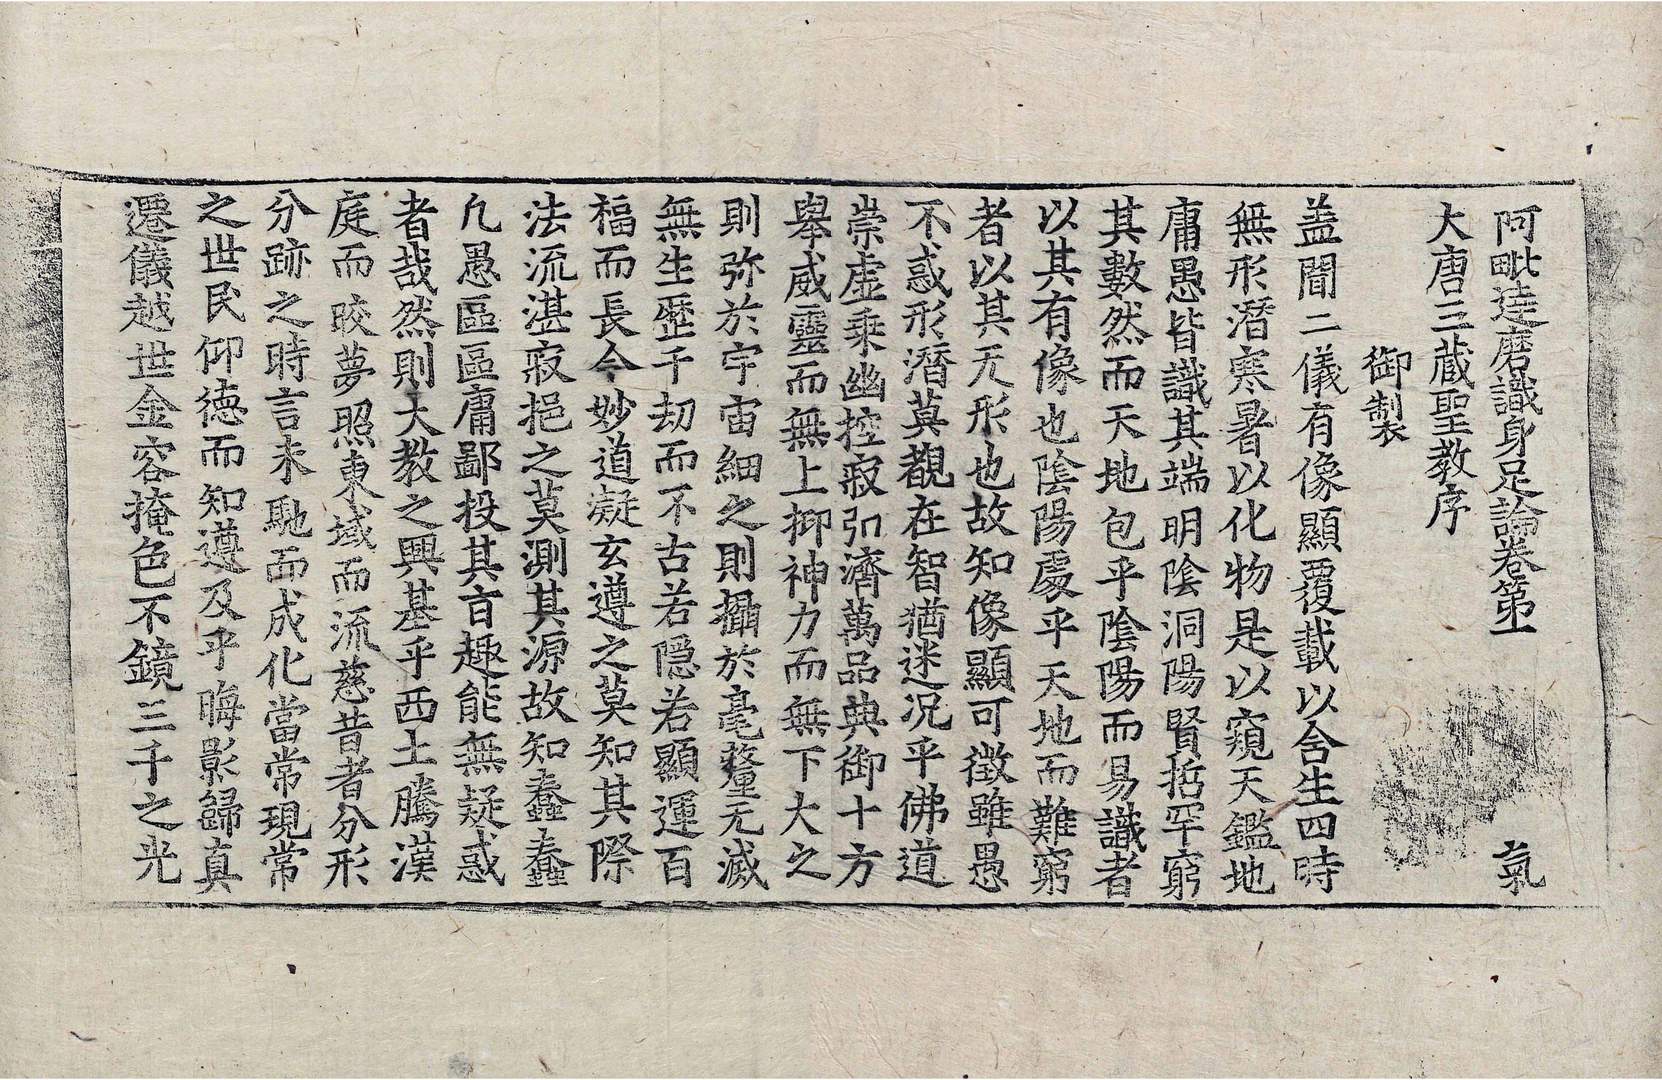 阿毗達磨識身足論卷第一 氣
大唐三藏聖教序
御製
盖聞二儀有像顯覆載以含生四時
無形潛寒暑以化物是以窺天鑑地
庸愚皆識其端明陰洞陽賢哲罕窮
其數然而天地包乎陰陽而易識者
以其有像也陰陽處乎天地而難窮
者以其无形也故知像顯可徵雖愚
不惑形潛莫覩在智猶迷况乎佛道
崇虛乘幽控寂弘濟萬品典御十方
舉威靈而無上抑神力而無下大之
則弥於宇宙細之則攝於毫氂无滅
無生歷千劫而不古若隱若顯運百
福而長今妙道凝玄遵之莫知其際
法流湛寂挹之莫測其源故知蠢蠢
凡愚區區庸鄙投其旨趣能無疑惑
者哉然則大教之興基乎西土騰漢
庭而皎夢照東域而流慈昔者分形
分跡之時言未馳而成化當常現常
之世民仰德而知遵及乎晦影歸真
遷儀越世金容掩色不鏡三千之光